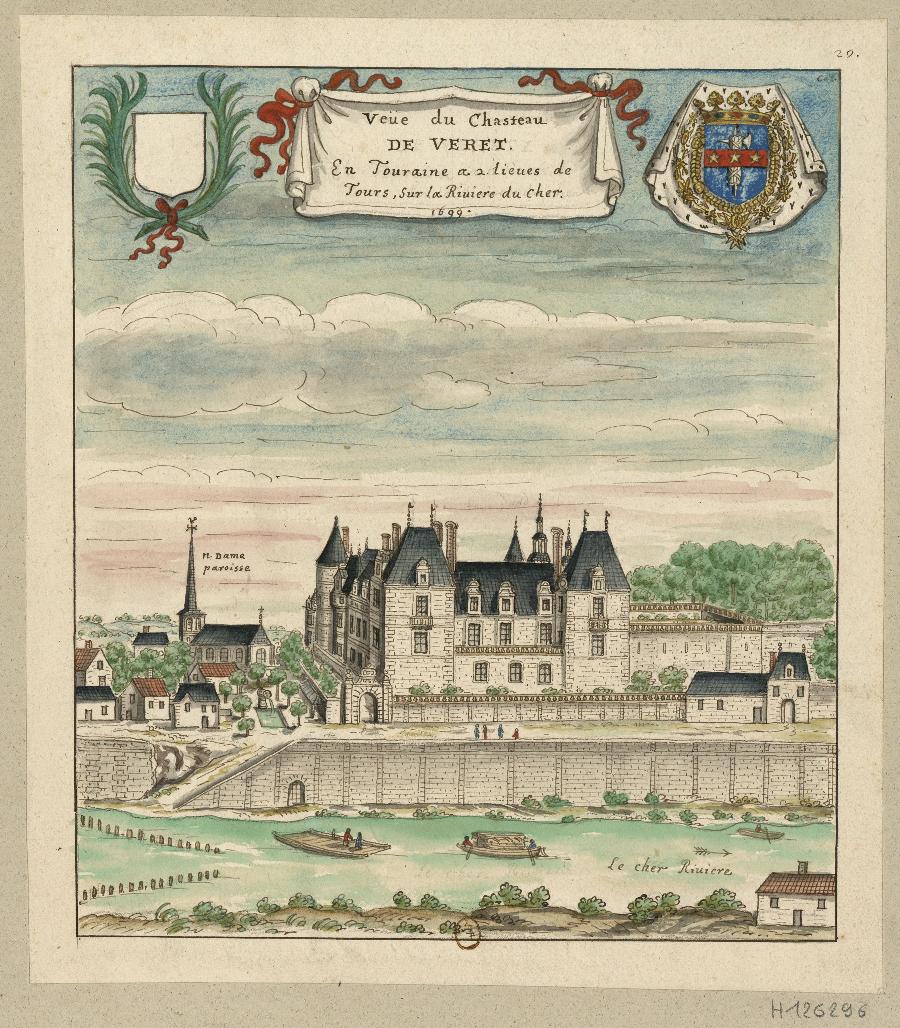 29.
Veue du Chasteau
DE VERET.
En Touraine a 2 lieues de
Tours, Sur la Riviere du Cher.
1699.
N. Dame
paroisse
Le cher Riviere
H126296